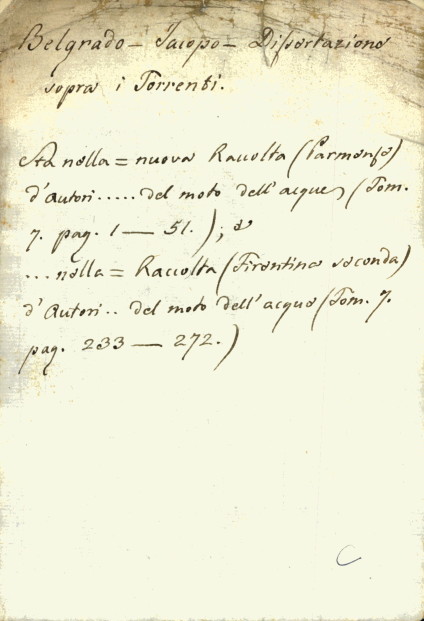 Belgrado - Jacopo - Dissertazione
sopra i Torrenti.
Sta nella = nuova Raccolta (Parmense)
d'autori ..... del moto dell'acque, (Tom.
7. pag. 1 — 51.); e
... nella = Raccolta (Firentina seconda)
d'Autori .. del moto dell'acque (Tom. 7.
pag. 233 — 272.)
C